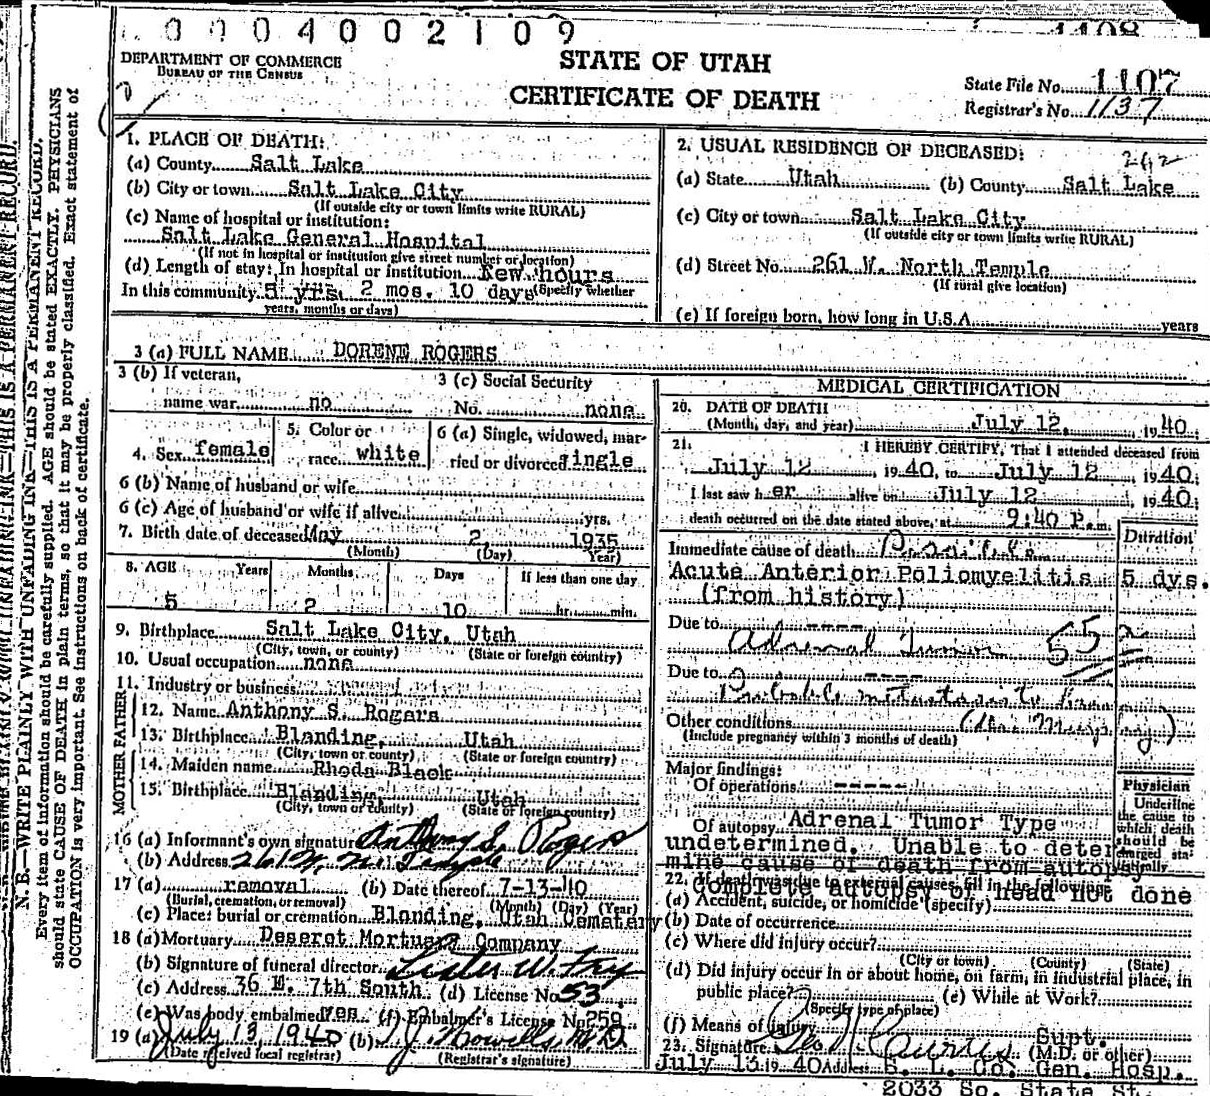 0004002109
1108
DEPARTMENT OF COMMERCE
BUREAU OF THE CENSUS
STATE OF UTAH
CERTIFICATE OF DEATH
State File No. 1107
Registrar's No. 1137
N. B.—WRITE PLAINLY WITH UNFADING INK—THIS IS A PERMANENT RECORD.
Every item of information should be carefully supplied. AGE should be stated EXACTLY. PHYSICIANS
should state CAUSE OF DEATH in plain terms, so that it may be properly classified. Exact statement of
OCCUPATION is very important. See instructions on back of certificate.
1. PLACE OF DEATH:
(a) County Salt Lake
(b) City or town Salt Lake City
(If outside city or town limits write RURAL)
(c) Name of hospital or institution:
Salt Lake General Hospital
(If not in hospital or institution give street number or location)
(d) Length of stay: In hospital or institution Few hours
In this community 5 yrs. 2 mos. 10 days (Specify whether
years, months or days)
2. USUAL RESIDENCE OF DECEASED:
242
(a) State Utah (b) County Salt Lake
(c) City or town Salt Lake City
(If outside city or town limits write RURAL)
(d) Street No. 261 W. North Temple
(If rural give location)
(e) If foreign born, how long in U.S.A. years
3 (a) FULL NAME DORENE ROGERS
3 (b) If veteran,
name war no
3 (c) Social Security
No. none
4. Sex female
5. Color or
race white
6 (a) Single, widowed, mar-
ried or divorced single
6 (b) Name of husband or wife
6 (c) Age of husband or wife if alive yrs.
7. Birth date of deceased May 2 1935
(Month) (Day) Year)
8. AGE Years Months Days If less than one day
5 2 10 hr. min.
9. Birthplace Salt Lake City, Utah
(City, town, or county) (State or foreign country)
10. Usual occupation none
11. Industry or business
FATHER
12. Name Anthony S. Rogers
13. Birthplace Blanding, Utah
(City, town or county) (State or foreign country)
MOTHER
14. Maiden name Rhoda Black
15. Birthplace Blanding, Utah
(City, town or county) (State or foreign country)
16 (a) Informant's own signature Anthony S. Rogers
(b) Address 261 W. No. Temple
17 (a) removal (b) Date thereof 7-13-40
(Burial, cremation, or removal) (Month) (Day) (Year)
(c) Place: burial or cremation Blanding, Utah Cemetary
18 (a) Mortuary Deseret Mortuary Company
(b) Signature of funeral director
(c) Address 36 E. 7th South (d) License No 53
(e) Was body embalmed? yes (f) Embalmer's License No 259
19 (a) July 13, 1940 (b) M.D.
(Date received local registrar) (Registrar's signature)
MEDICAL CERTIFICATION
20. DATE OF DEATH
(Month, day, and year) July 12, 1940
21. I HEREBY CERTIFY, That I attended deceased from
July 12 1940, to July 12 1940;
I last saw her alive on July 12 1940;
death occurred on the date stated above, at 9:40 P.m.
Duration
Immediate cause of death
Acute Anterior Poliomyelitis 5 dys.
(from history)
Due to ----
Adrenal Tumor 55
Due to ----
Other conditions
(Include pregnancy within 3 months of death)
Major findings:
Of operations -----
Physician
Underline
the cause to
which death
should be
charged sta-
tistically.
Of autopsy Adrenal Tumor Type
undetermined. Unable to deter
mine cause of death from autopsy
Complete autopsy of head not done
22. If death was due to external causes, fill in the following:
(a) Accident, suicide, or homicide (specify)
(b) Date of occurrence
(c) Where did injury occur?
(City or town) (County) (State)
(d) Did injury occur in or about home, on farm, in industrial place, in
public place? (e) While at Work?
(Specify type of place)
(f) Means of injury
23. Signature Supt.
(M.D. or other)
July 13 1940 Address S. L. Co. Gen. Hosp.
2033 So. State St.